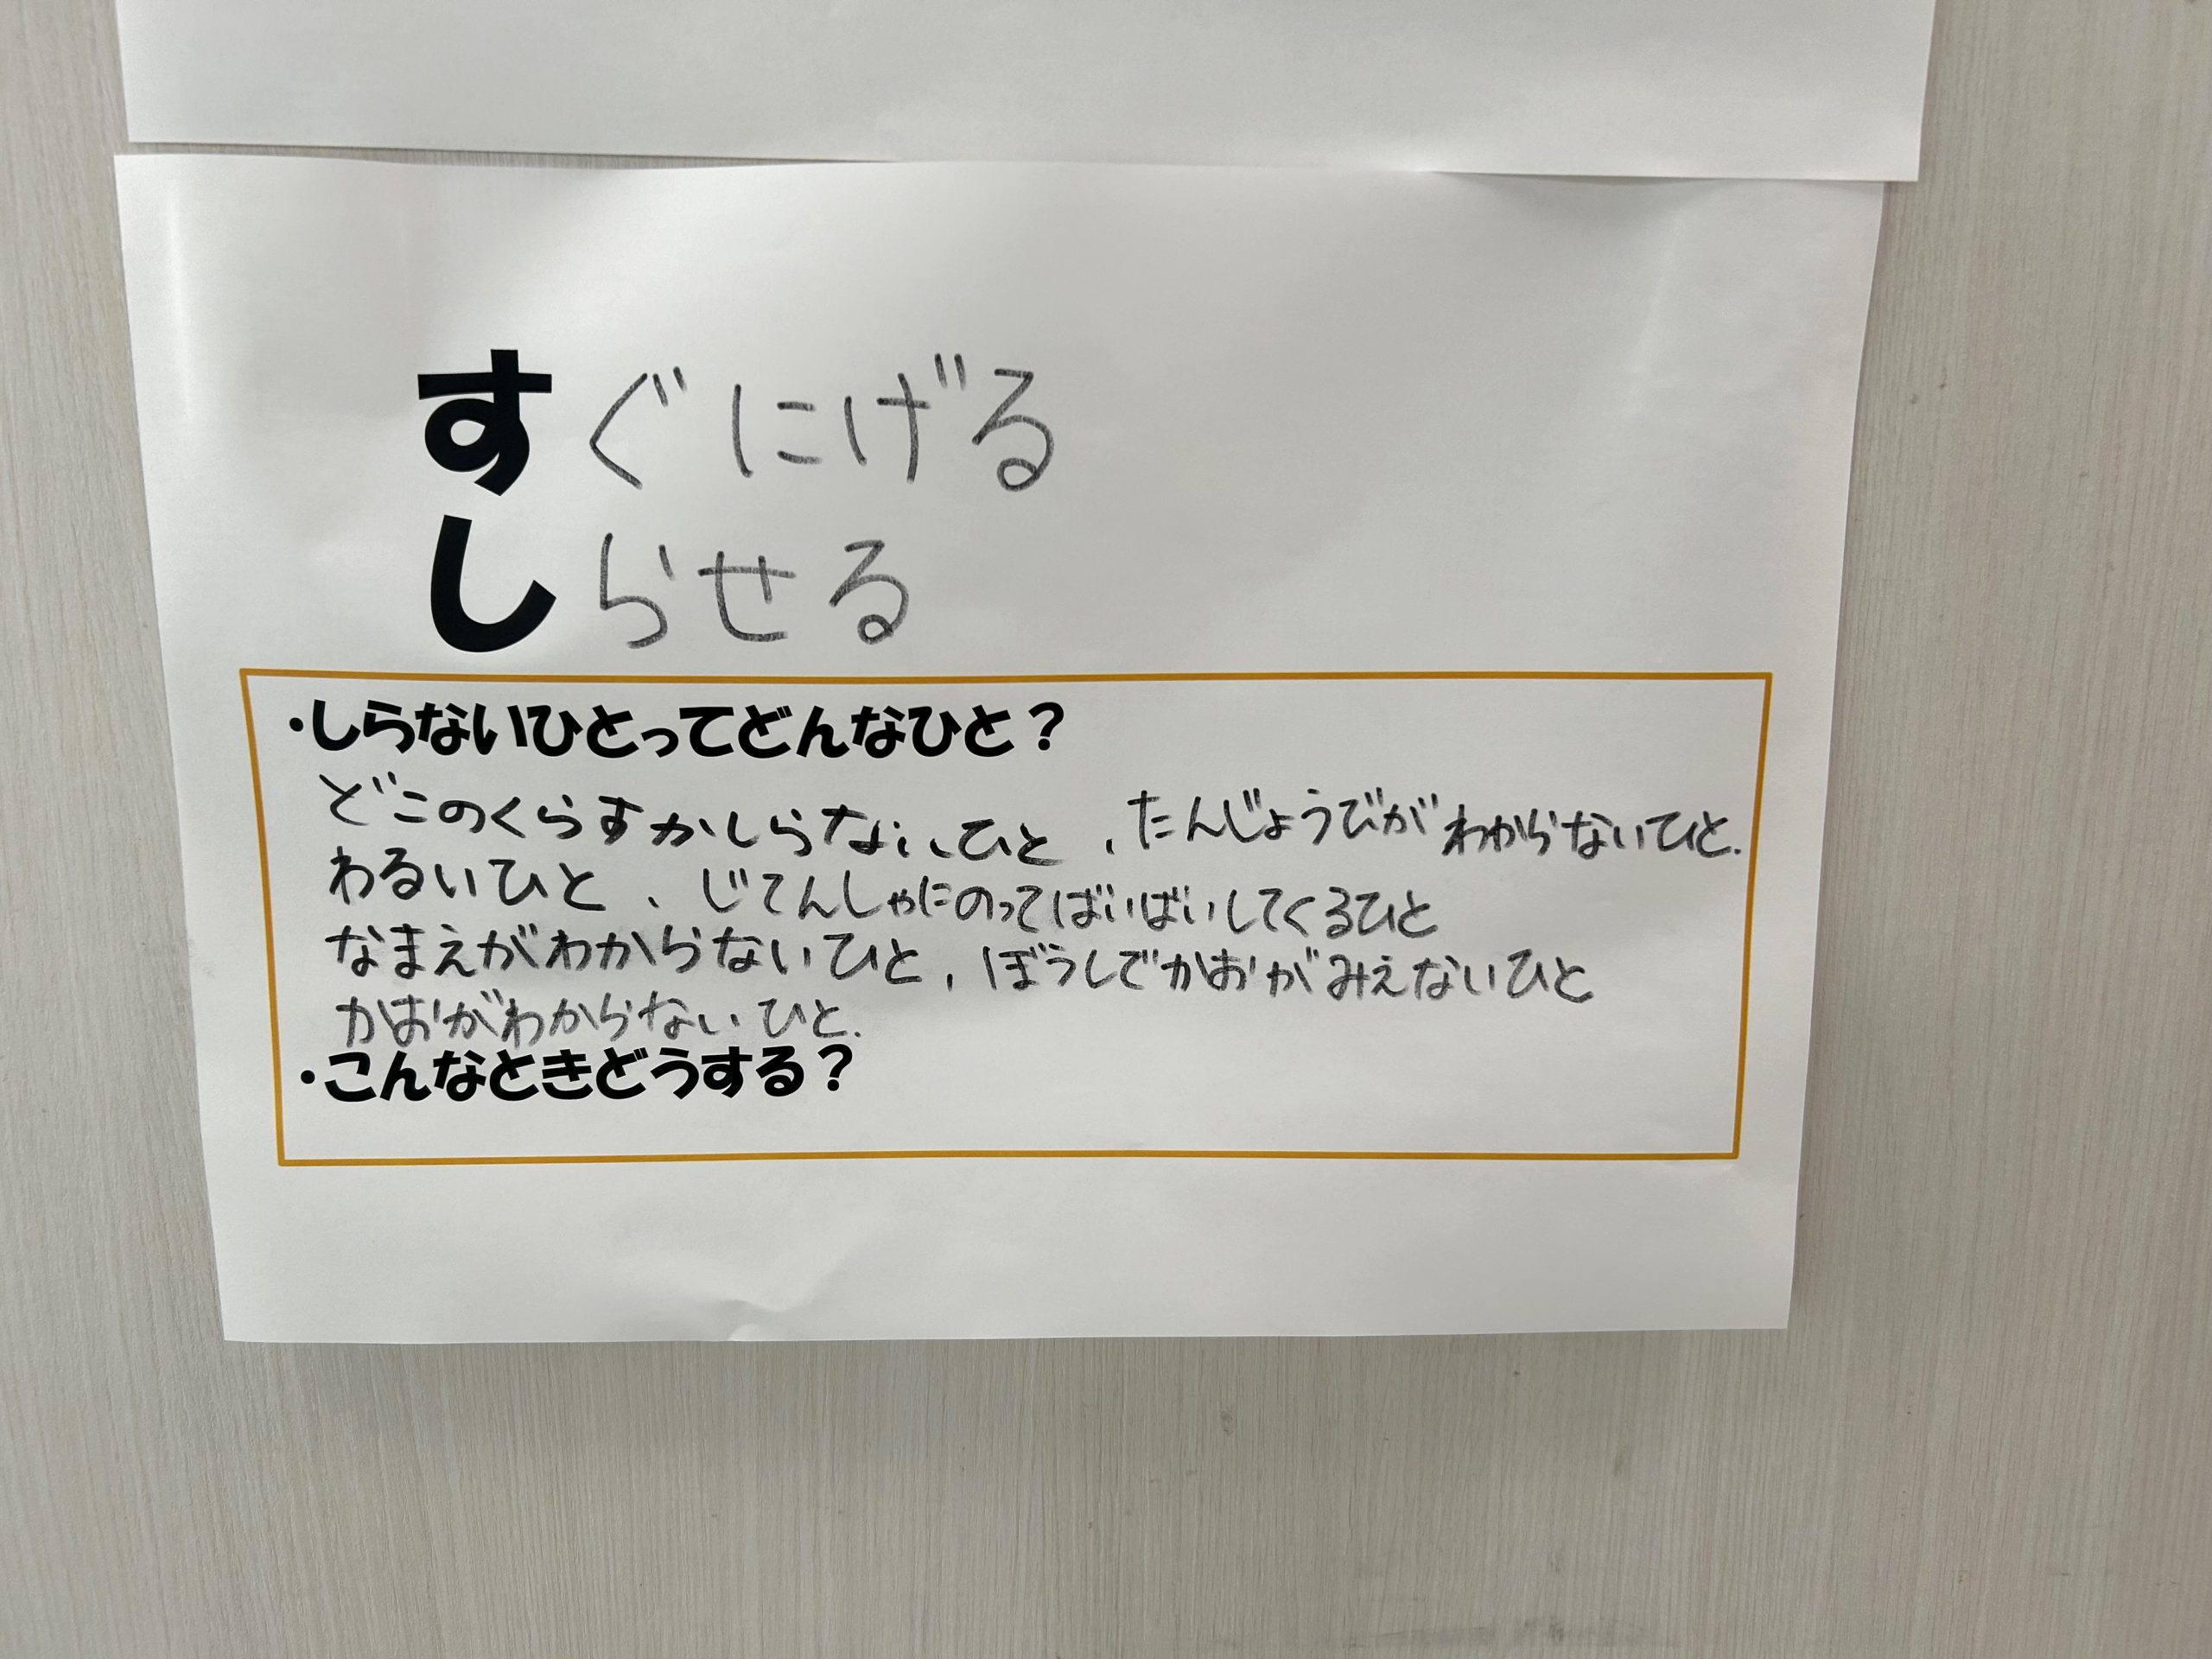 すぐにげる
しらせる
・しらないひとってどんなひと？
どこのくらすかしらないひと、たんじょうびがわからないひと.
わるいひと、じてんしゃにのってばいばいしてくるひと
なまえがわからないひと、ぼうしでかおがみえないひと
かおがわからないひと.
・こんなときどうする？